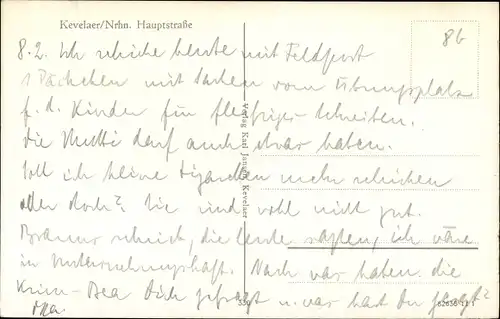 Kevelaer/Nrhn. Hauptstraße
86
8.2. Ich schicke heute mit Feldpost
1 Päckchen mit Sachen vom Übungsplatz
f. d. Kinder für fleißiges Schreiben.
die Mutti darf auch etwas haben.
Soll ich keine Zigaretten mehr schicken
oder doch? Sie sind wohl nicht gut.
schreibt, die Leute sagten, ich wäre
in Untersuchungshaft. Nach was haben die
Dich gefragt u. was hast Du gesagt?
Verlag Karl Janssen, Kevelaer
330